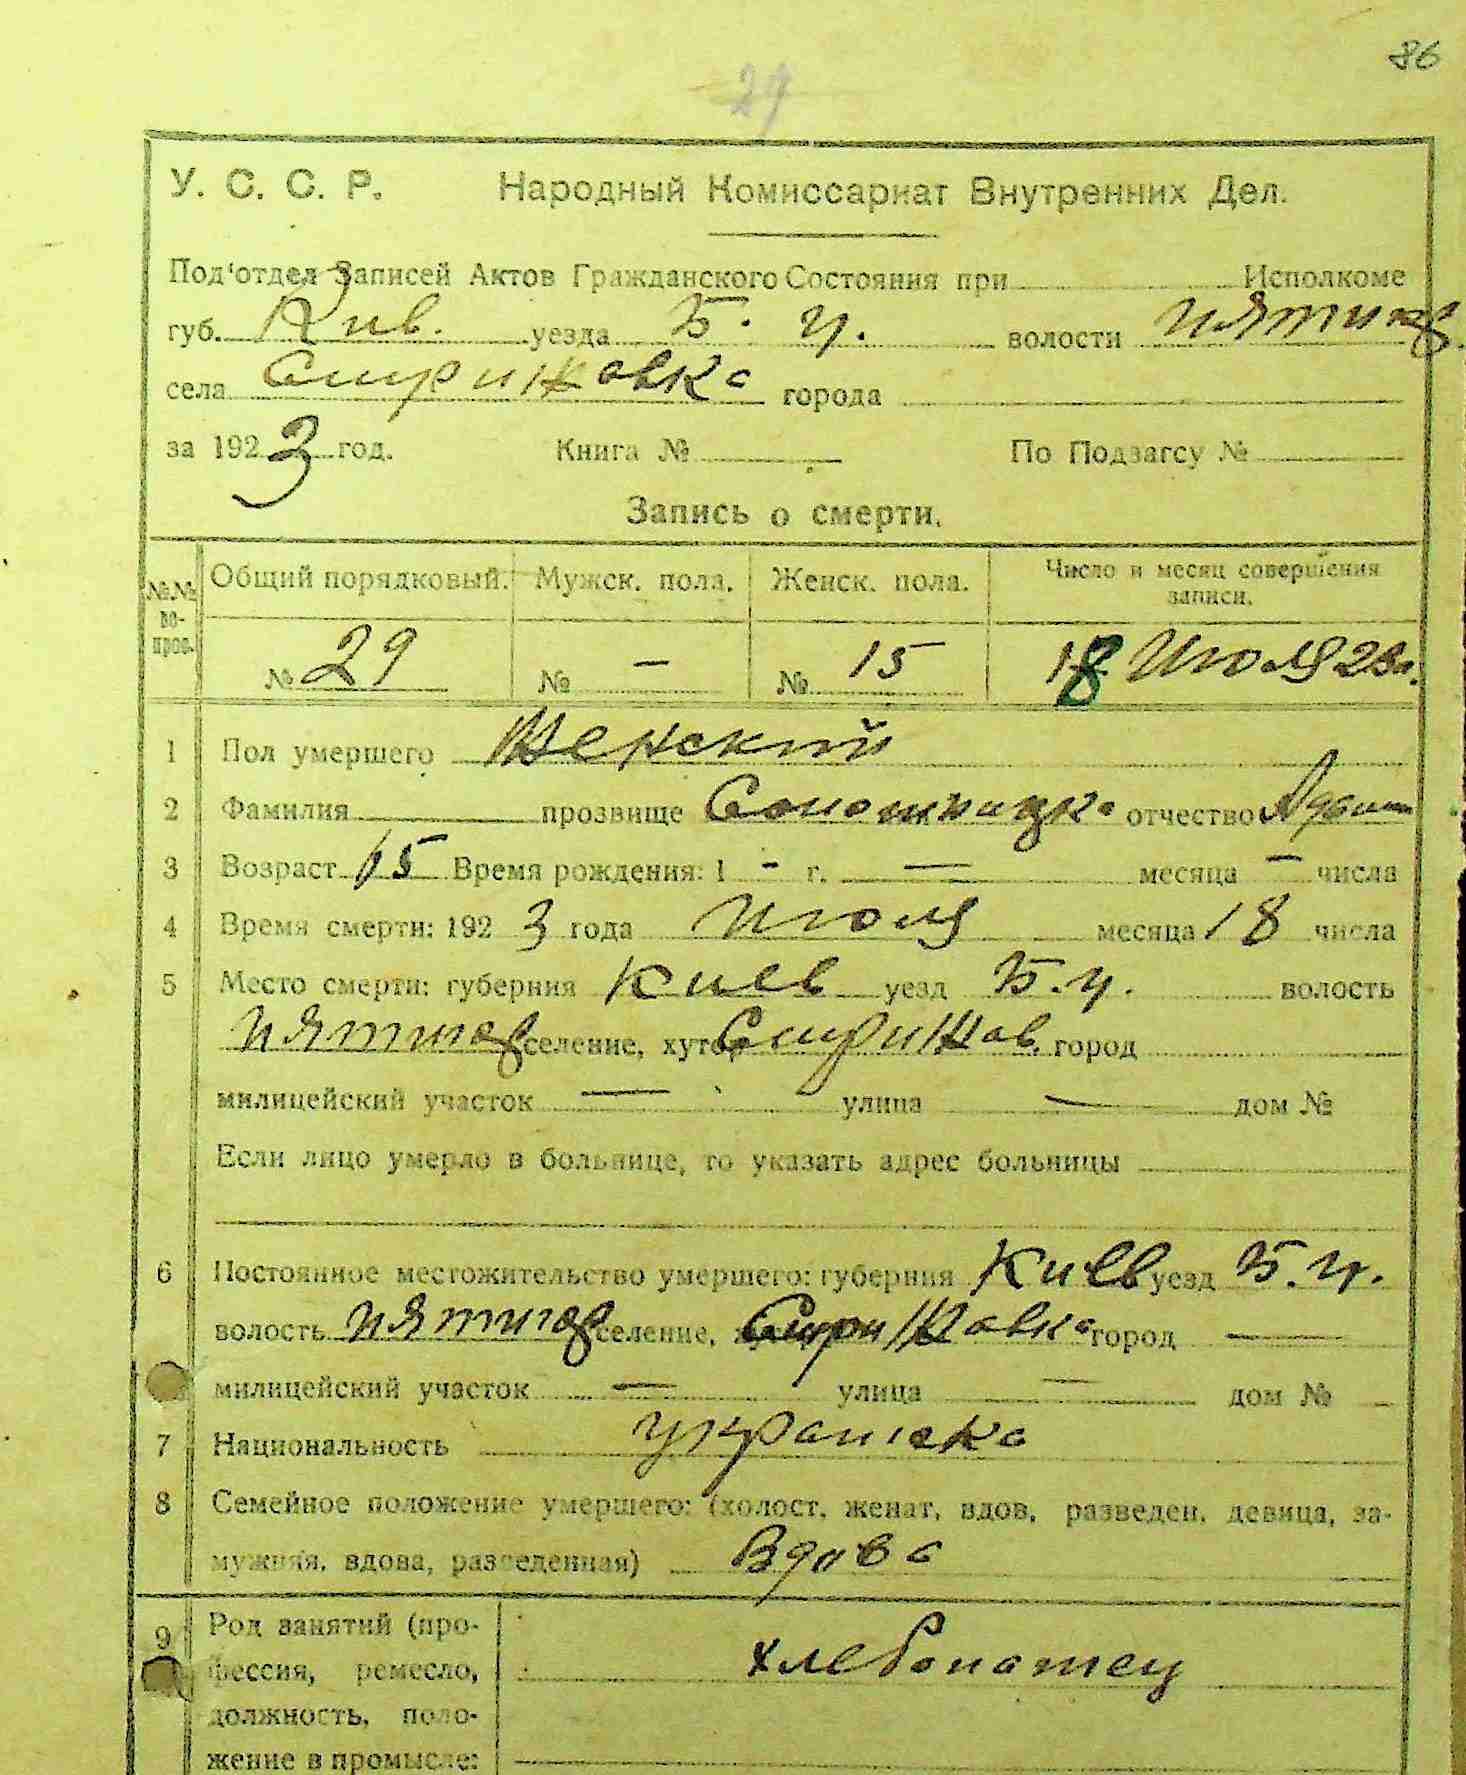 86
29
У. С. С. Р. Народный Комиссариат Внутренних Дел.
Под‘отдел Записей Актов Гражданского Состояния при Исполкоме
губ. Кив. уезда Б. Ц. волости Пятигор.
села Стрижавка города
за 1923 год. Книга № По Подзагсу №
Запись о смерти.
№№ во-прос. Общий порядковый. Мужск. пола. Женск. пола. Число и месяц совершения записи.
№ 29 № — № 15 18 Июля 23 г.
1 Пол умершего Женский
2 Фамилия прозвище отчество
3 Возраст 65 Время рождения: 1 - г. — месяца — числа
4 Время смерти: 1923 года Июля месяца 18 числа
5 Место смерти: губерния Киев уезд Б. Ц. волость
Пятигор селение, хутор Стрижав. город
милицейский участок — улица — дом №
Если лицо умерло в больнице, то указать адрес больницы
6 Постоянное местожительство умершего: губерния Киев уезд Б. Ц.
волость Пятигор селение, Стрижавка город —
милицейский участок — улица — дом №
7 Национальность украинка
8 Семейное положение умершего: (холост, женат, вдов, разведен, девица, за-
мужняя, вдова, разведенная) Вдова
9 Род занятий (про-
фессия, ремесло, хлебопашец
должность, поло-
жение в промысле: